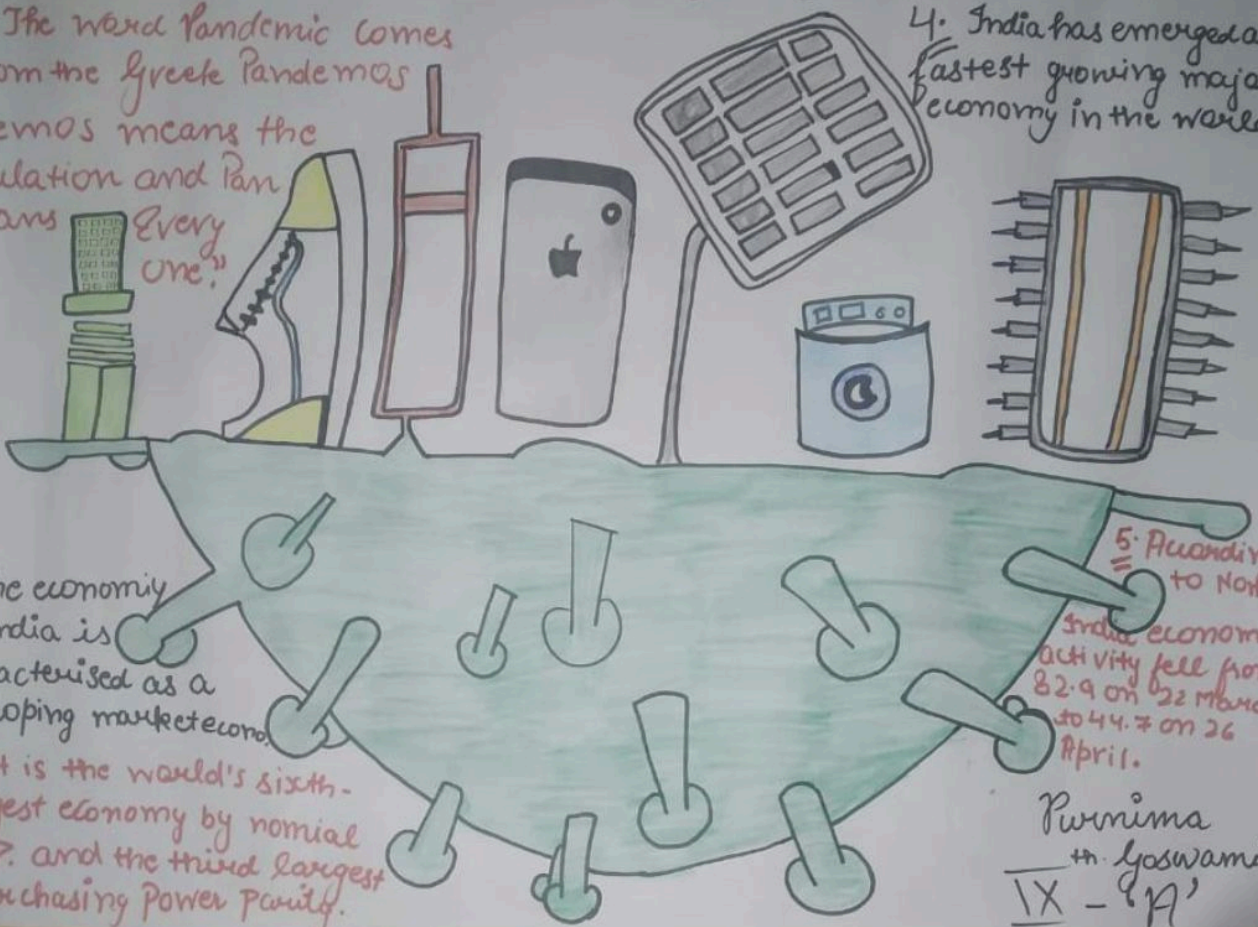 The word Pandemic comes
om the Greek Pandemos
emos means the
ulation and Pan
ans Every
one."
4. India has emerged a
fastest growing majo
economy in the worl
he economiy
ndia is
acterised as a
oping market econo
t is the world's sixth-
gest economy by nomial
P. and the third largest
rchasing Power Parity.
5. Accordin
to Nom
India econom
activity fell fro
82.9 on 22 Marc
to 44.7 on 26
April.
Purnima
Goswam
IX - 'A'